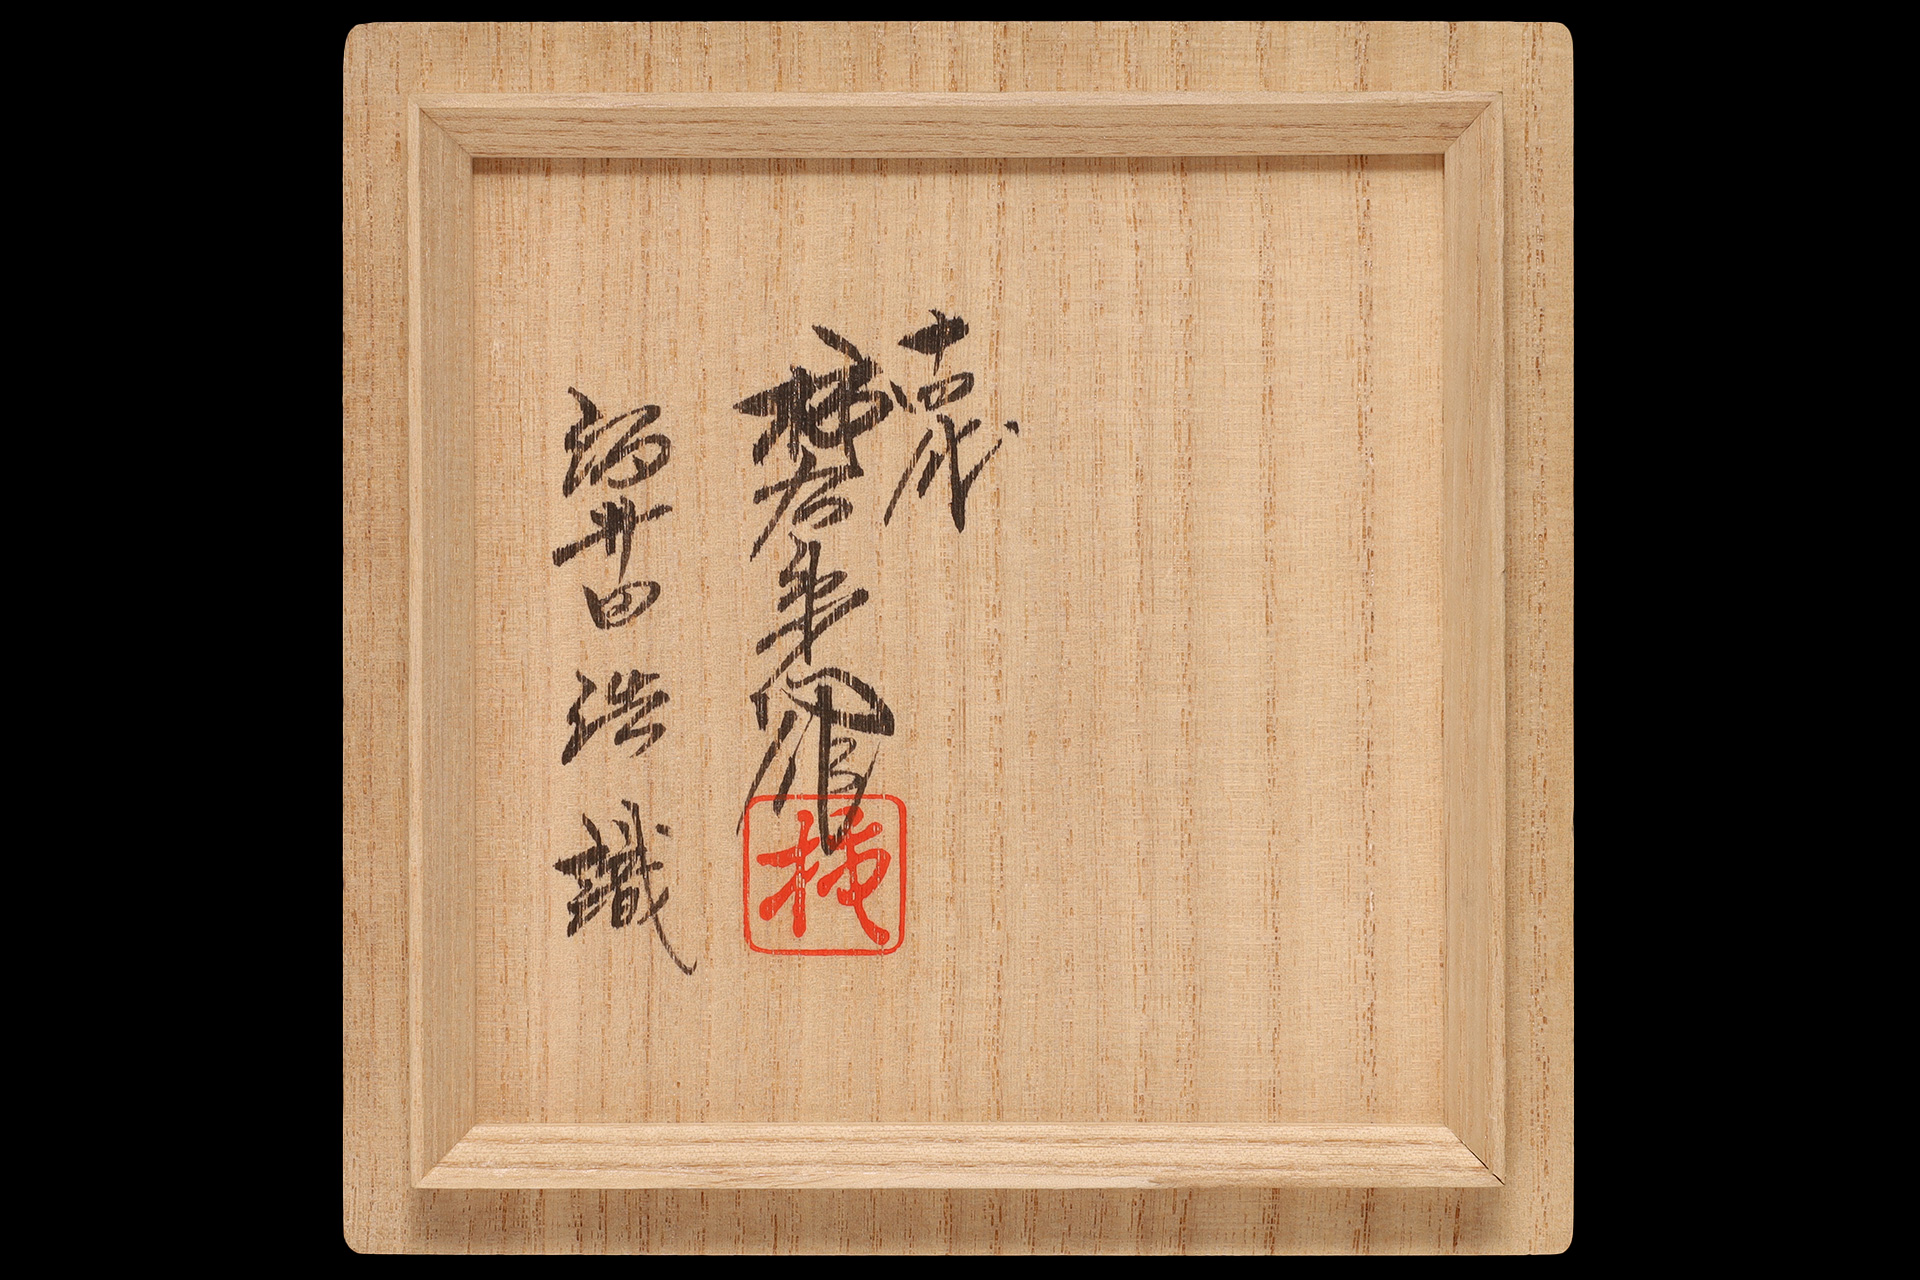 十四代
柿右衛門作
柿
酒井田浩識